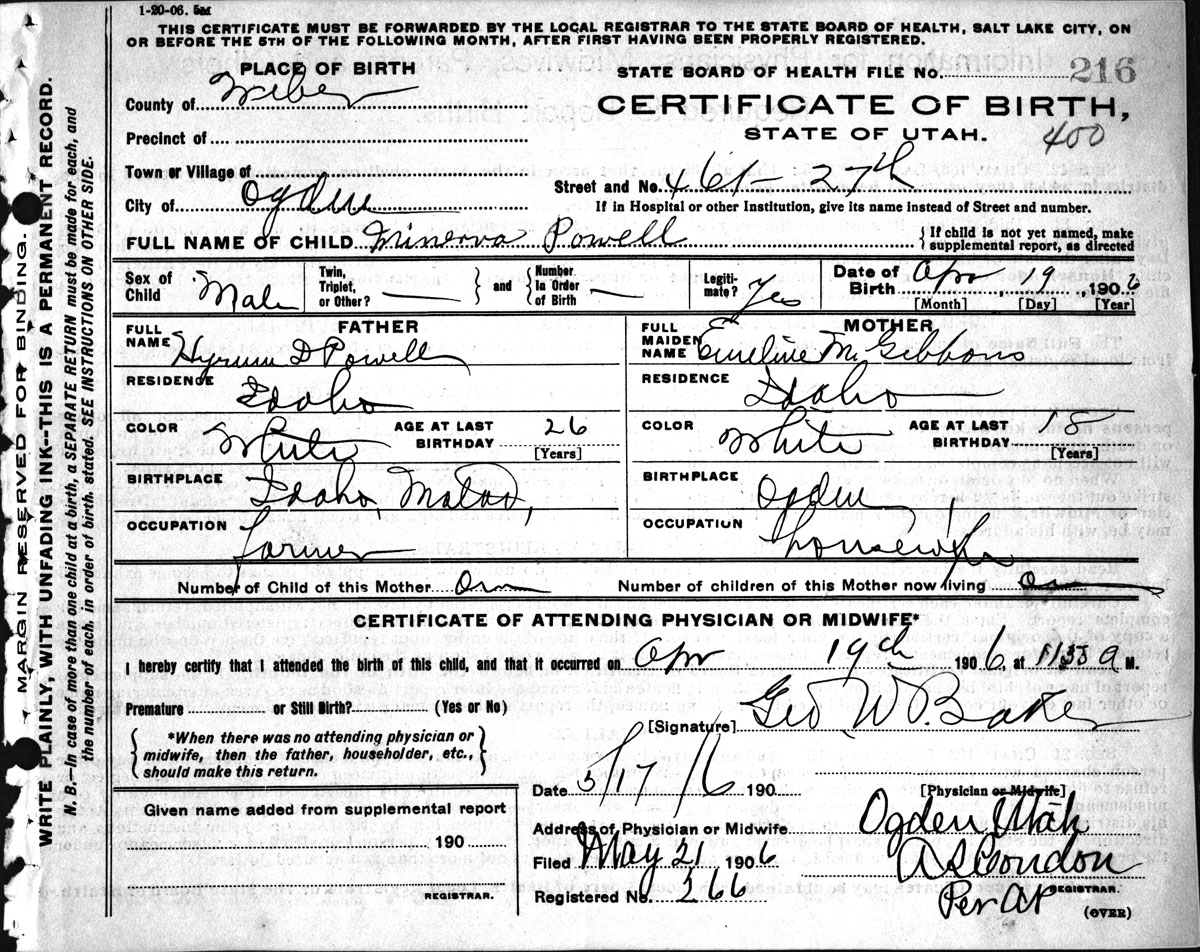 1-20-06. 5M
THIS CERTIFICATE MUST BE FORWARDED BY THE LOCAL REGISTRAR TO THE STATE BOARD OF HEALTH, SALT LAKE CITY, ON
OR BEFORE THE 5TH OF THE FOLLOWING MONTH, AFTER FIRST HAVING BEEN PROPERLY REGISTERED.
MARGIN RESERVED FOR BINDING.
WRITE PLAINLY, WITH UNFADING INK--THIS IS A PERMANENT RECORD.
N. B.—In case of more than one child at a birth, a SEPARATE RETURN must be made for each, and
the number of each, in order of birth, stated. SEE INSTRUCTIONS ON OTHER SIDE.
PLACE OF BIRTH
County of Weber
Precinct of
Town or Village of
City of Ogden
STATE BOARD OF HEALTH FILE No. 216
CERTIFICATE OF BIRTH,
STATE OF UTAH.
400
Street and No. 461- 27th
If in Hospital or other Institution, give its name instead of Street and number.
FULL NAME OF CHILD Minerva Powell
{ If child is not yet named, make
supplemental report, as directed
Sex of Child Male
Twin, Triplet, or Other? —
and
Number in Order of Birth —
Legiti-mate? Yes
Date of Birth Apr, 19 1906
[Month] [Day] [Year]
FATHER
FULL NAME Hyrum D Powell
RESIDENCE Idaho
COLOR White
AGE AT LAST BIRTHDAY 26
[Years]
BIRTHPLACE Idaho, Malad,
OCCUPATION farmer
MOTHER
FULL MAIDEN NAME Emeline M. Gibbons
RESIDENCE Idaho
COLOR White
AGE AT LAST BIRTHDAY 18
[Years]
BIRTHPLACE Ogden
OCCUPATION housewife
Number of Child of this Mother One
Number of children of this Mother now living One
CERTIFICATE OF ATTENDING PHYSICIAN OR MIDWIFE*
I hereby certify that I attended the birth of this child, and that it occurred on Apr 19th 1906, at A M.
Premature or Still Birth? (Yes or No)
[Signature] Geo W. Baker
{ *When there was no attending physician or
midwife, then the father, householder, etc.,
should make this return. }
Date 5/17/6 190
[Physician or Midwife]
Given name added from supplemental report
190
REGISTRAR.
Address of Physician or Midwife Ogden Utah
Filed May 21 1906
A S Condon
REGISTRAR.
Registered No. 266
Per AP
(OVER)